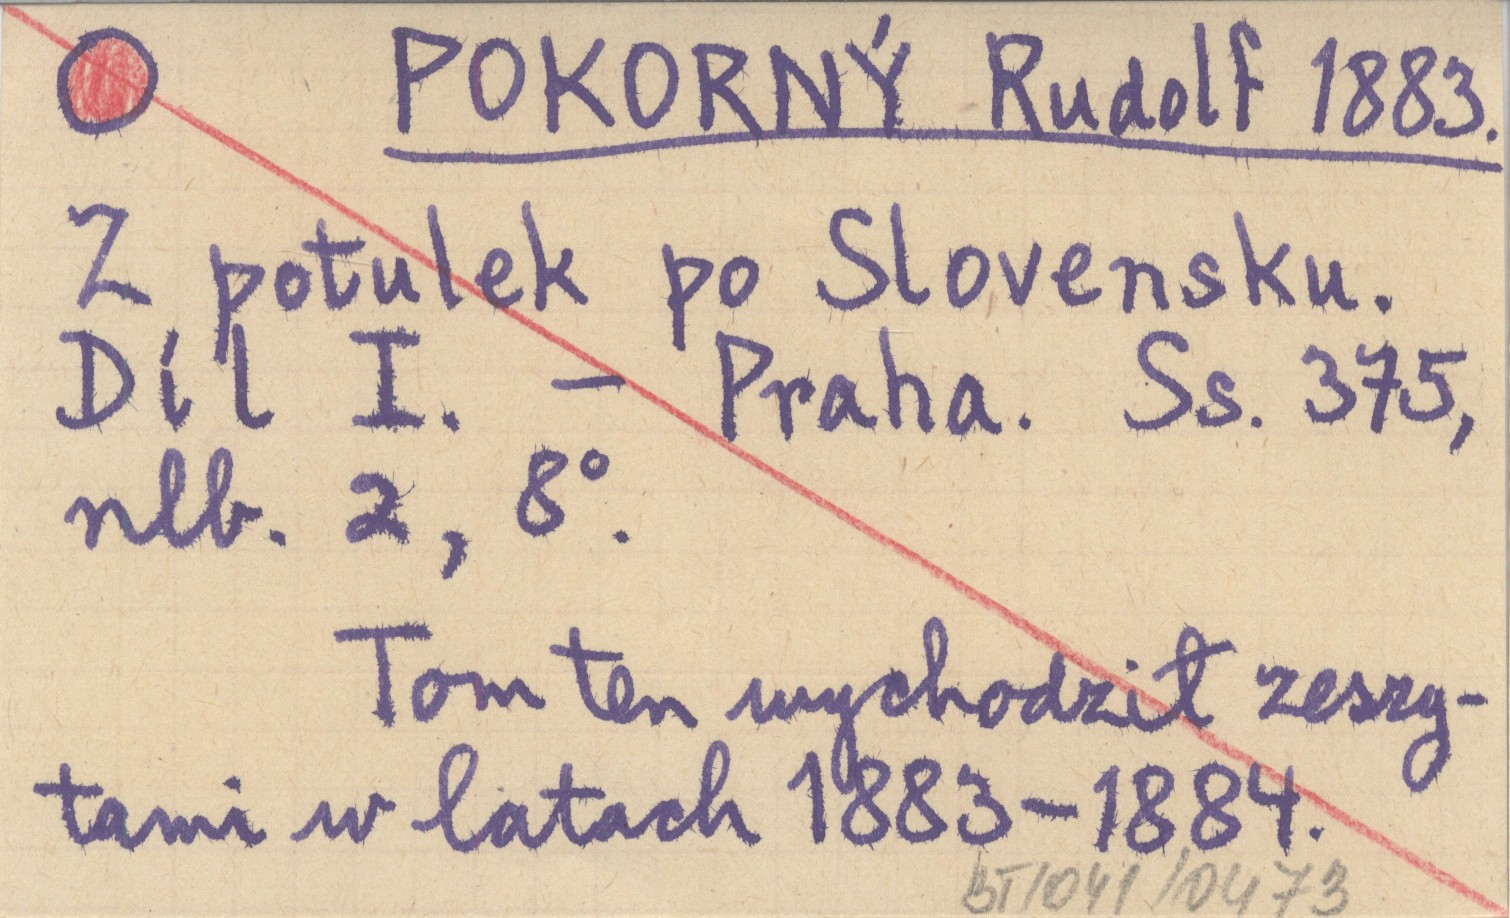 POKORNÝ Rudolf 1883.
Z potulek po Slovensku.
Díl I. – Praha. Ss. 375,
nlb. 2, 8°.
Tom ten wychodził zeszy-
tami w latach 1883–1884.
BT/041/0473